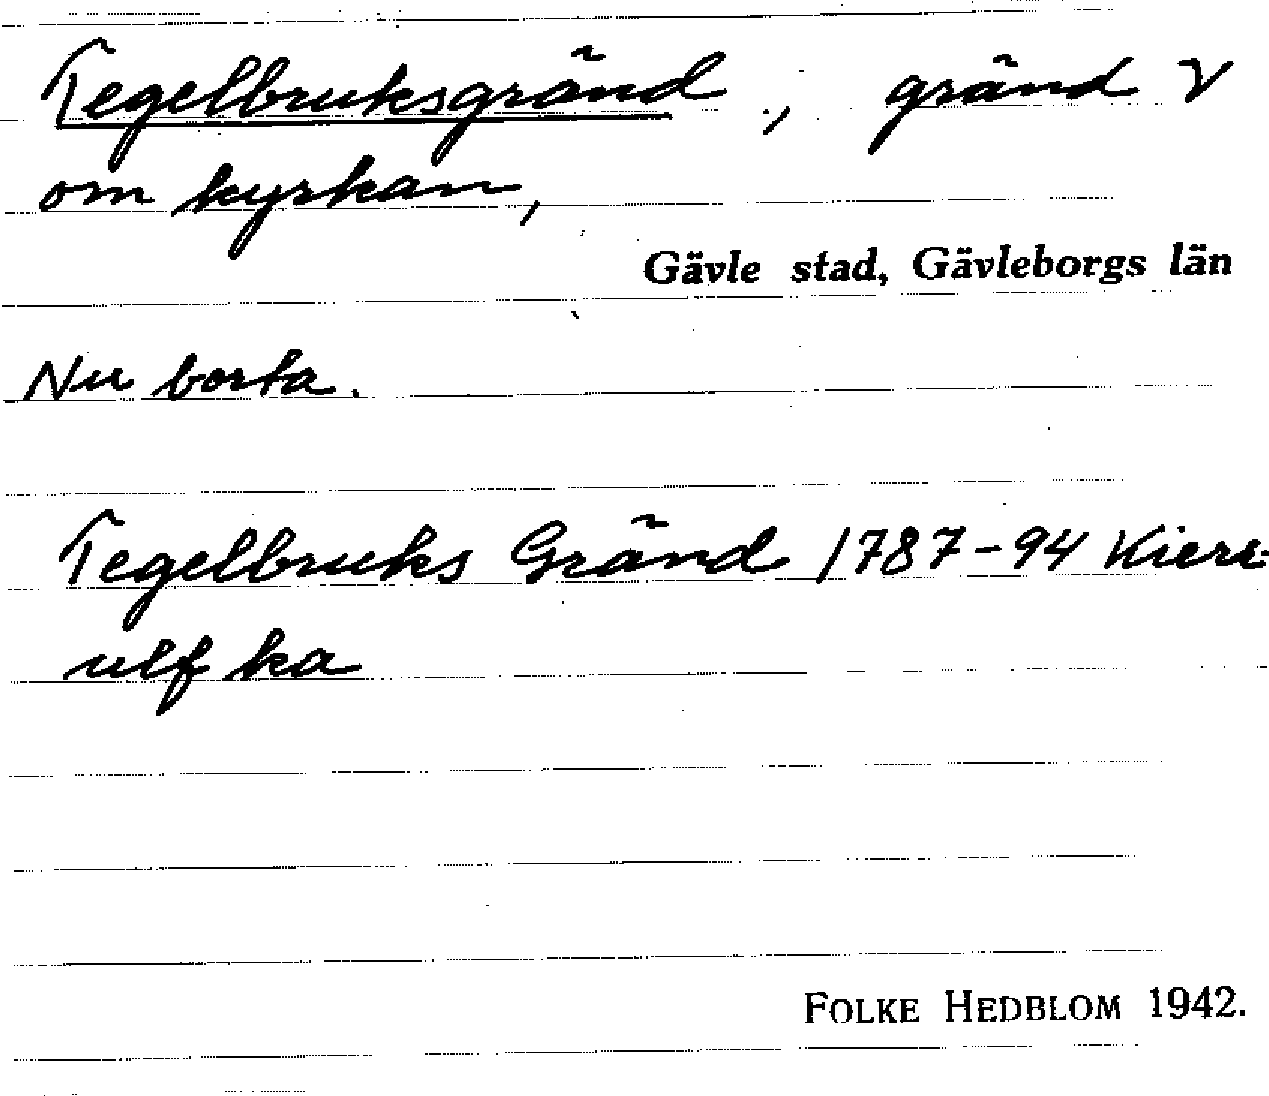 Tegelbruksgränd, gränd V
om kyrkan,
Gävle stad, Gävleborgs län
Nu borta.
Tegelbruks Gränd 1787-94 Kier-
ulf ka
FOLKE HEDBLOM 1942.